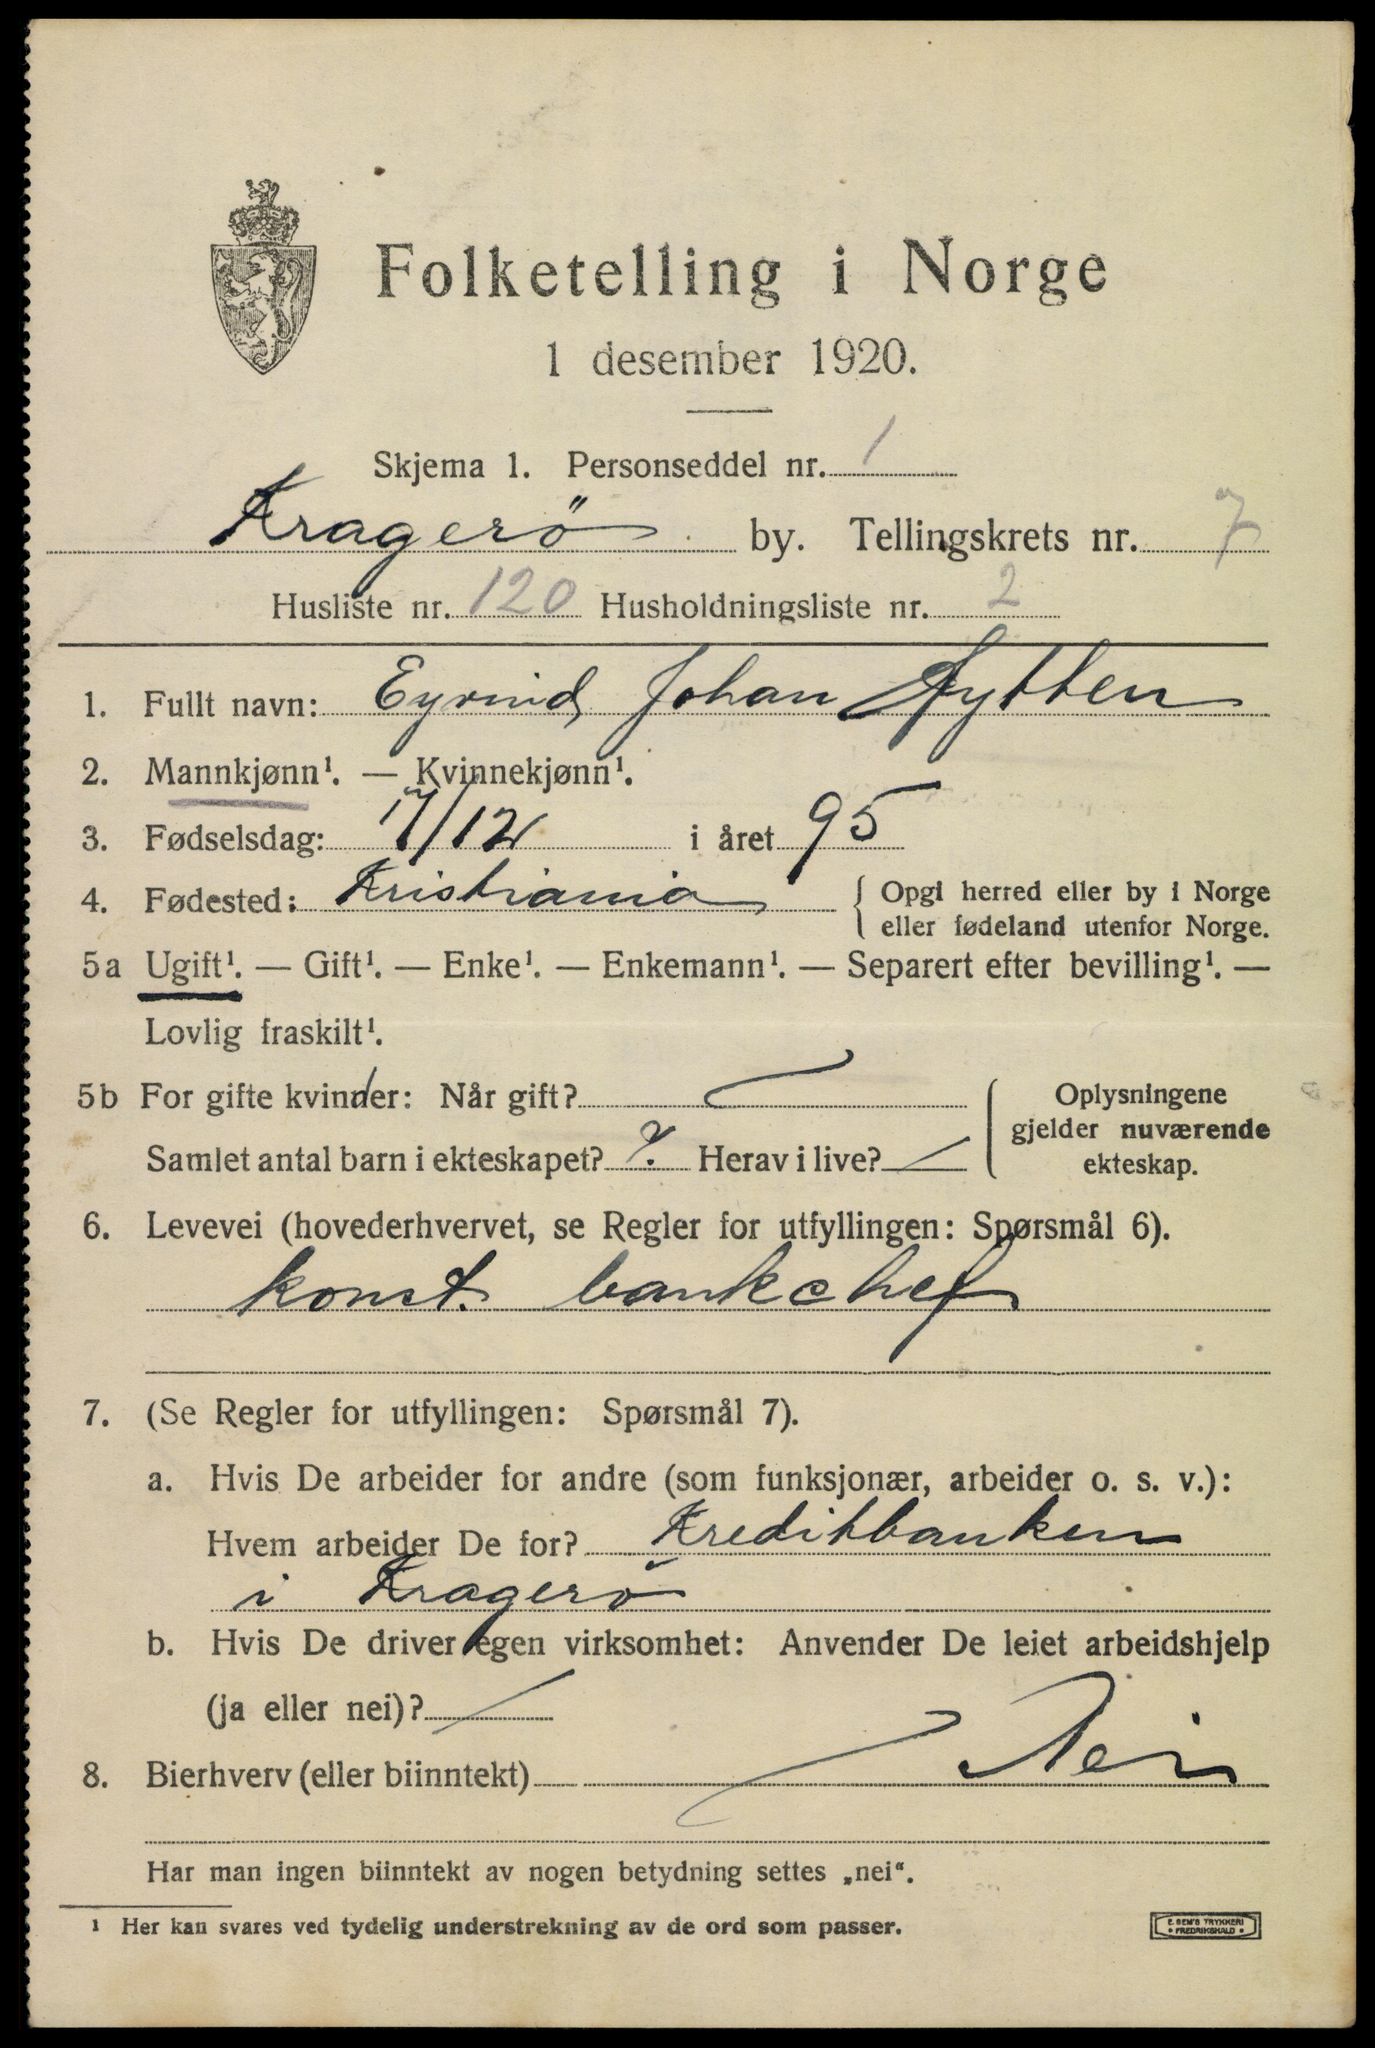 Folketelling i Norge
1 desember 1920.
Skjema 1. Personseddel nr. 1
Kragerö by. Tellingskrets nr. 7
Husliste nr. 120 Husholdningsliste nr. 2
1. Fullt navn: Eyvind Johan Nytten
2. Mannkjønn¹. — Kvinnekjønn¹.
3. Fødselsdag: 17/12 i året 95
4. Fødested: Kristiania { Opgi herred eller by i Norge
eller fødeland utenfor Norge.
5a Ugift¹. — Gift¹. — Enke¹. — Enkemann¹. — Separert efter bevilling¹. —
Lovlig fraskilt¹.
5b For gifte kvinder: Når gift? { Oplysningene
gjelder nuværende
Samlet antal barn i ekteskapet? Herav i live? /
ekteskap.
6. Levevei (hovederhvervet, se Regler for utfyllingen: Spørsmål 6).
konst. bankchef
7. (Se Regler for utfyllingen: Spørsmål 7).
a. Hvis De arbeider for andre (som funksjonær, arbeider o. s. v.):
Hvem arbeider De for? Kreditbanken
i Kragerö
b. Hvis De driver egen virksomhet: Anvender De leiet arbeidshjelp
(ja eller nei)? /
8. Bierhverv (eller biinntekt) Nei
Har man ingen biinntekt av nogen betydning settes „nei“.
¹ Her kan svares ved tydelig understrekning av de ord som passer.
E. SEM'S TRYKKERI
FREDRIKSHALD